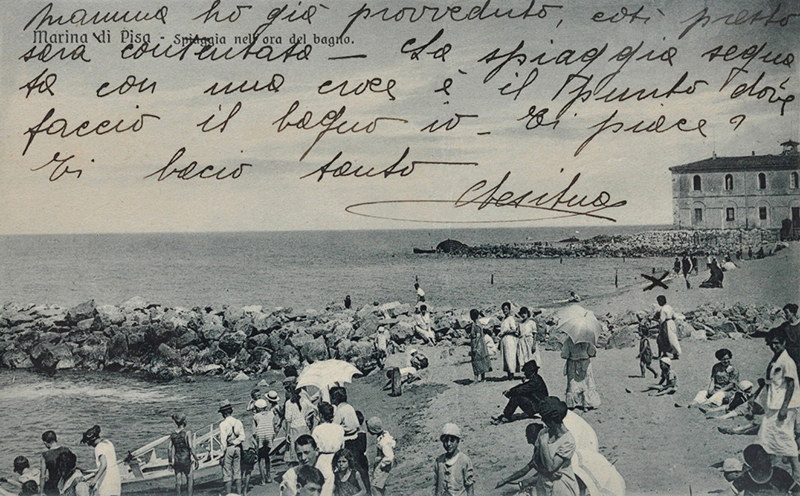 mamma ho già provveduto, così presto
Marina di Pisa - Spiaggia nell'ora del bagno.
sara contentata — La spiaggia segna
ta con una croce è il punto dove
faccio il bagno io — Ti piace?
Ti bacio tanto